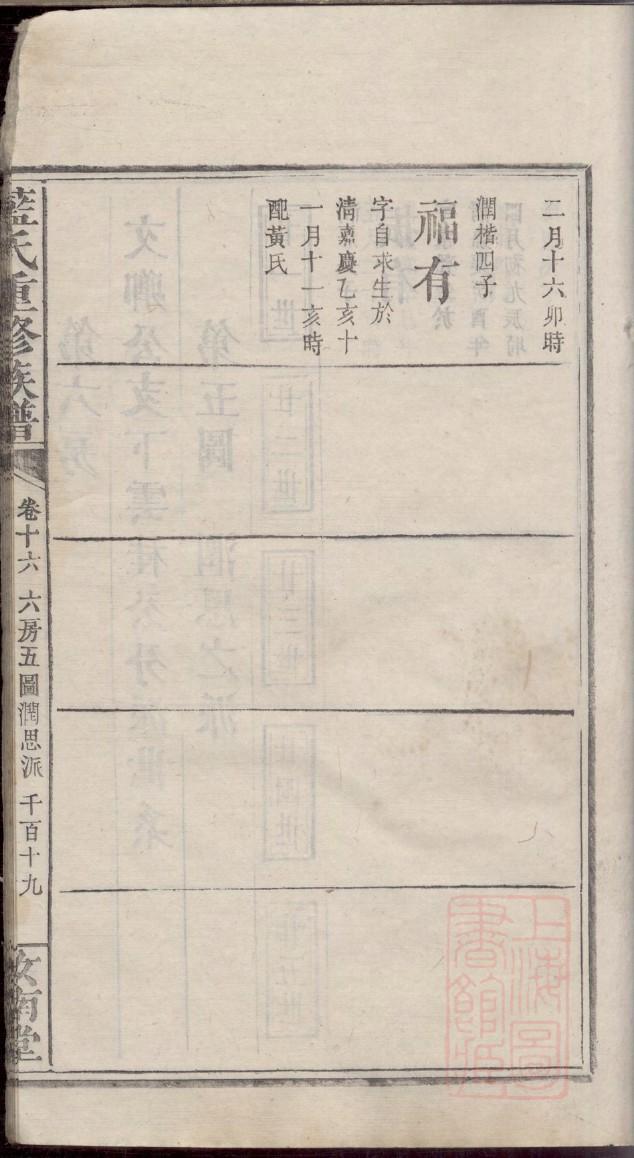 二月十六卯時
潤楷四子
福有
字自求生於
清嘉慶乙亥十
一月十一亥時
配黃氏
藍氏重修族譜
卷十六 六房五圖潤思派 千百十九
汝南堂
上海圖
書館藏